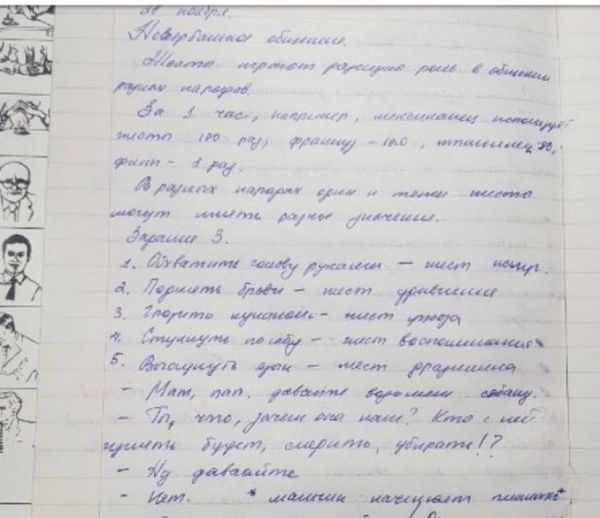 28 ноября.
Невербальное общение.
Жесты играют разную роль в общении
разных народов.
За 1 час, например, мексиканец использует
жесты 180 раз, француз - 120, итальянец 80,
финн - 1 раз.
В разных народах одни и те же жесты
могут иметь разное значение.
Задание 3.
1. Обхватить голову руками - жест испуг.
2. Поднять брови - жест удивления
3. жест
4. Стукнуть по лбу - жест воспоминания
5. Высунуть язык - жест дразнилка
- Мам, пап, давайте возьмем собаку.
- Ты, что, зачем она нам? Кто с ней
гулять будет, смотреть, убирать!?
- Ну давайте
- Нет. * мальчик начинает плакать *